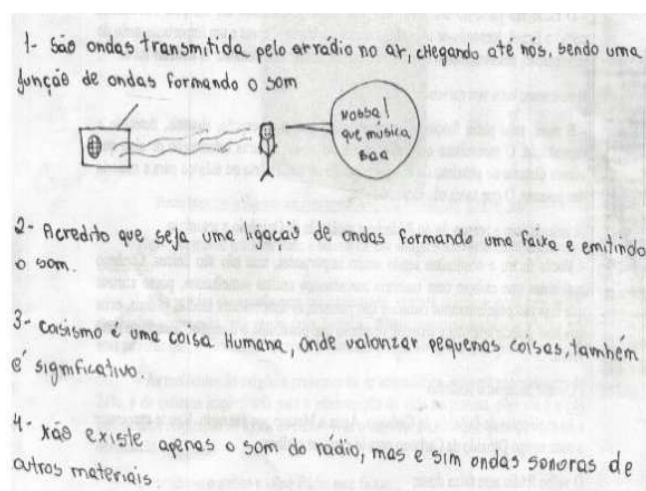 1- São ondas transmitida pelo arrádio no ar, chegando até nós, sendo uma
junção de ondas formando o som
Nossa!
que música
Boa
2- Acredito que seja uma ligação de ondas formando uma faixa e emitindo
o som.
3- Casismo é uma coisa Humana, onde valorizar pequenas coisas, também
é significativo.
4- Não existe apenas o som do rádio, mas e sim ondas sonoras de
outros materiais